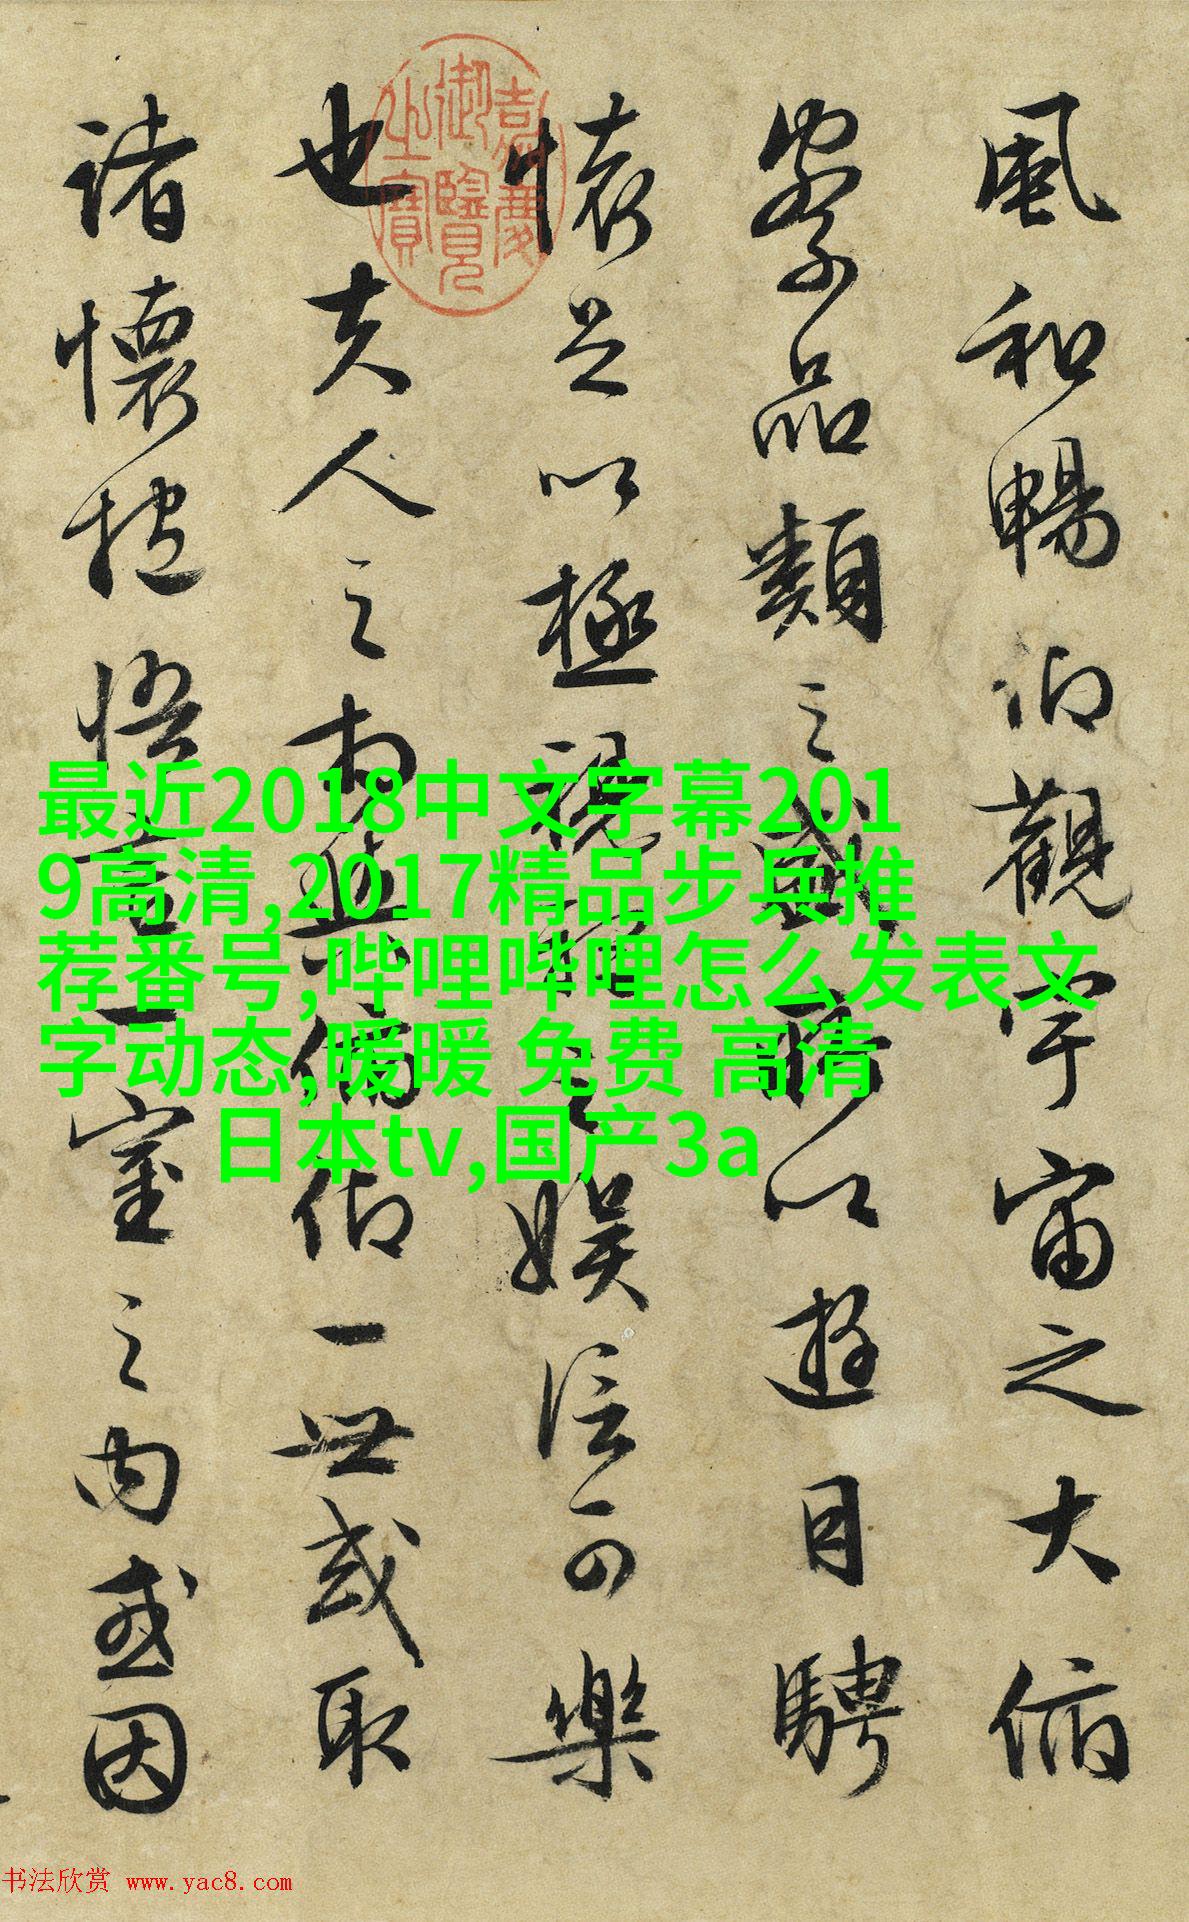 風和暢仰觀宇宙之大俯
察品類之盛所以遊目騁
懷足以極視聽之娛信可樂
也夫人之相與俯仰一世或取
諸懷抱悟言一室之內或因
嘉慶
御覽
之寶
最近2018中文字幕201
9高清,2017精品步兵推
荐番号,哔哩哔哩怎么发表文
字动态,暖暖 免费 高清
日本tv,国产3a
书法欣赏 www.yac8.com